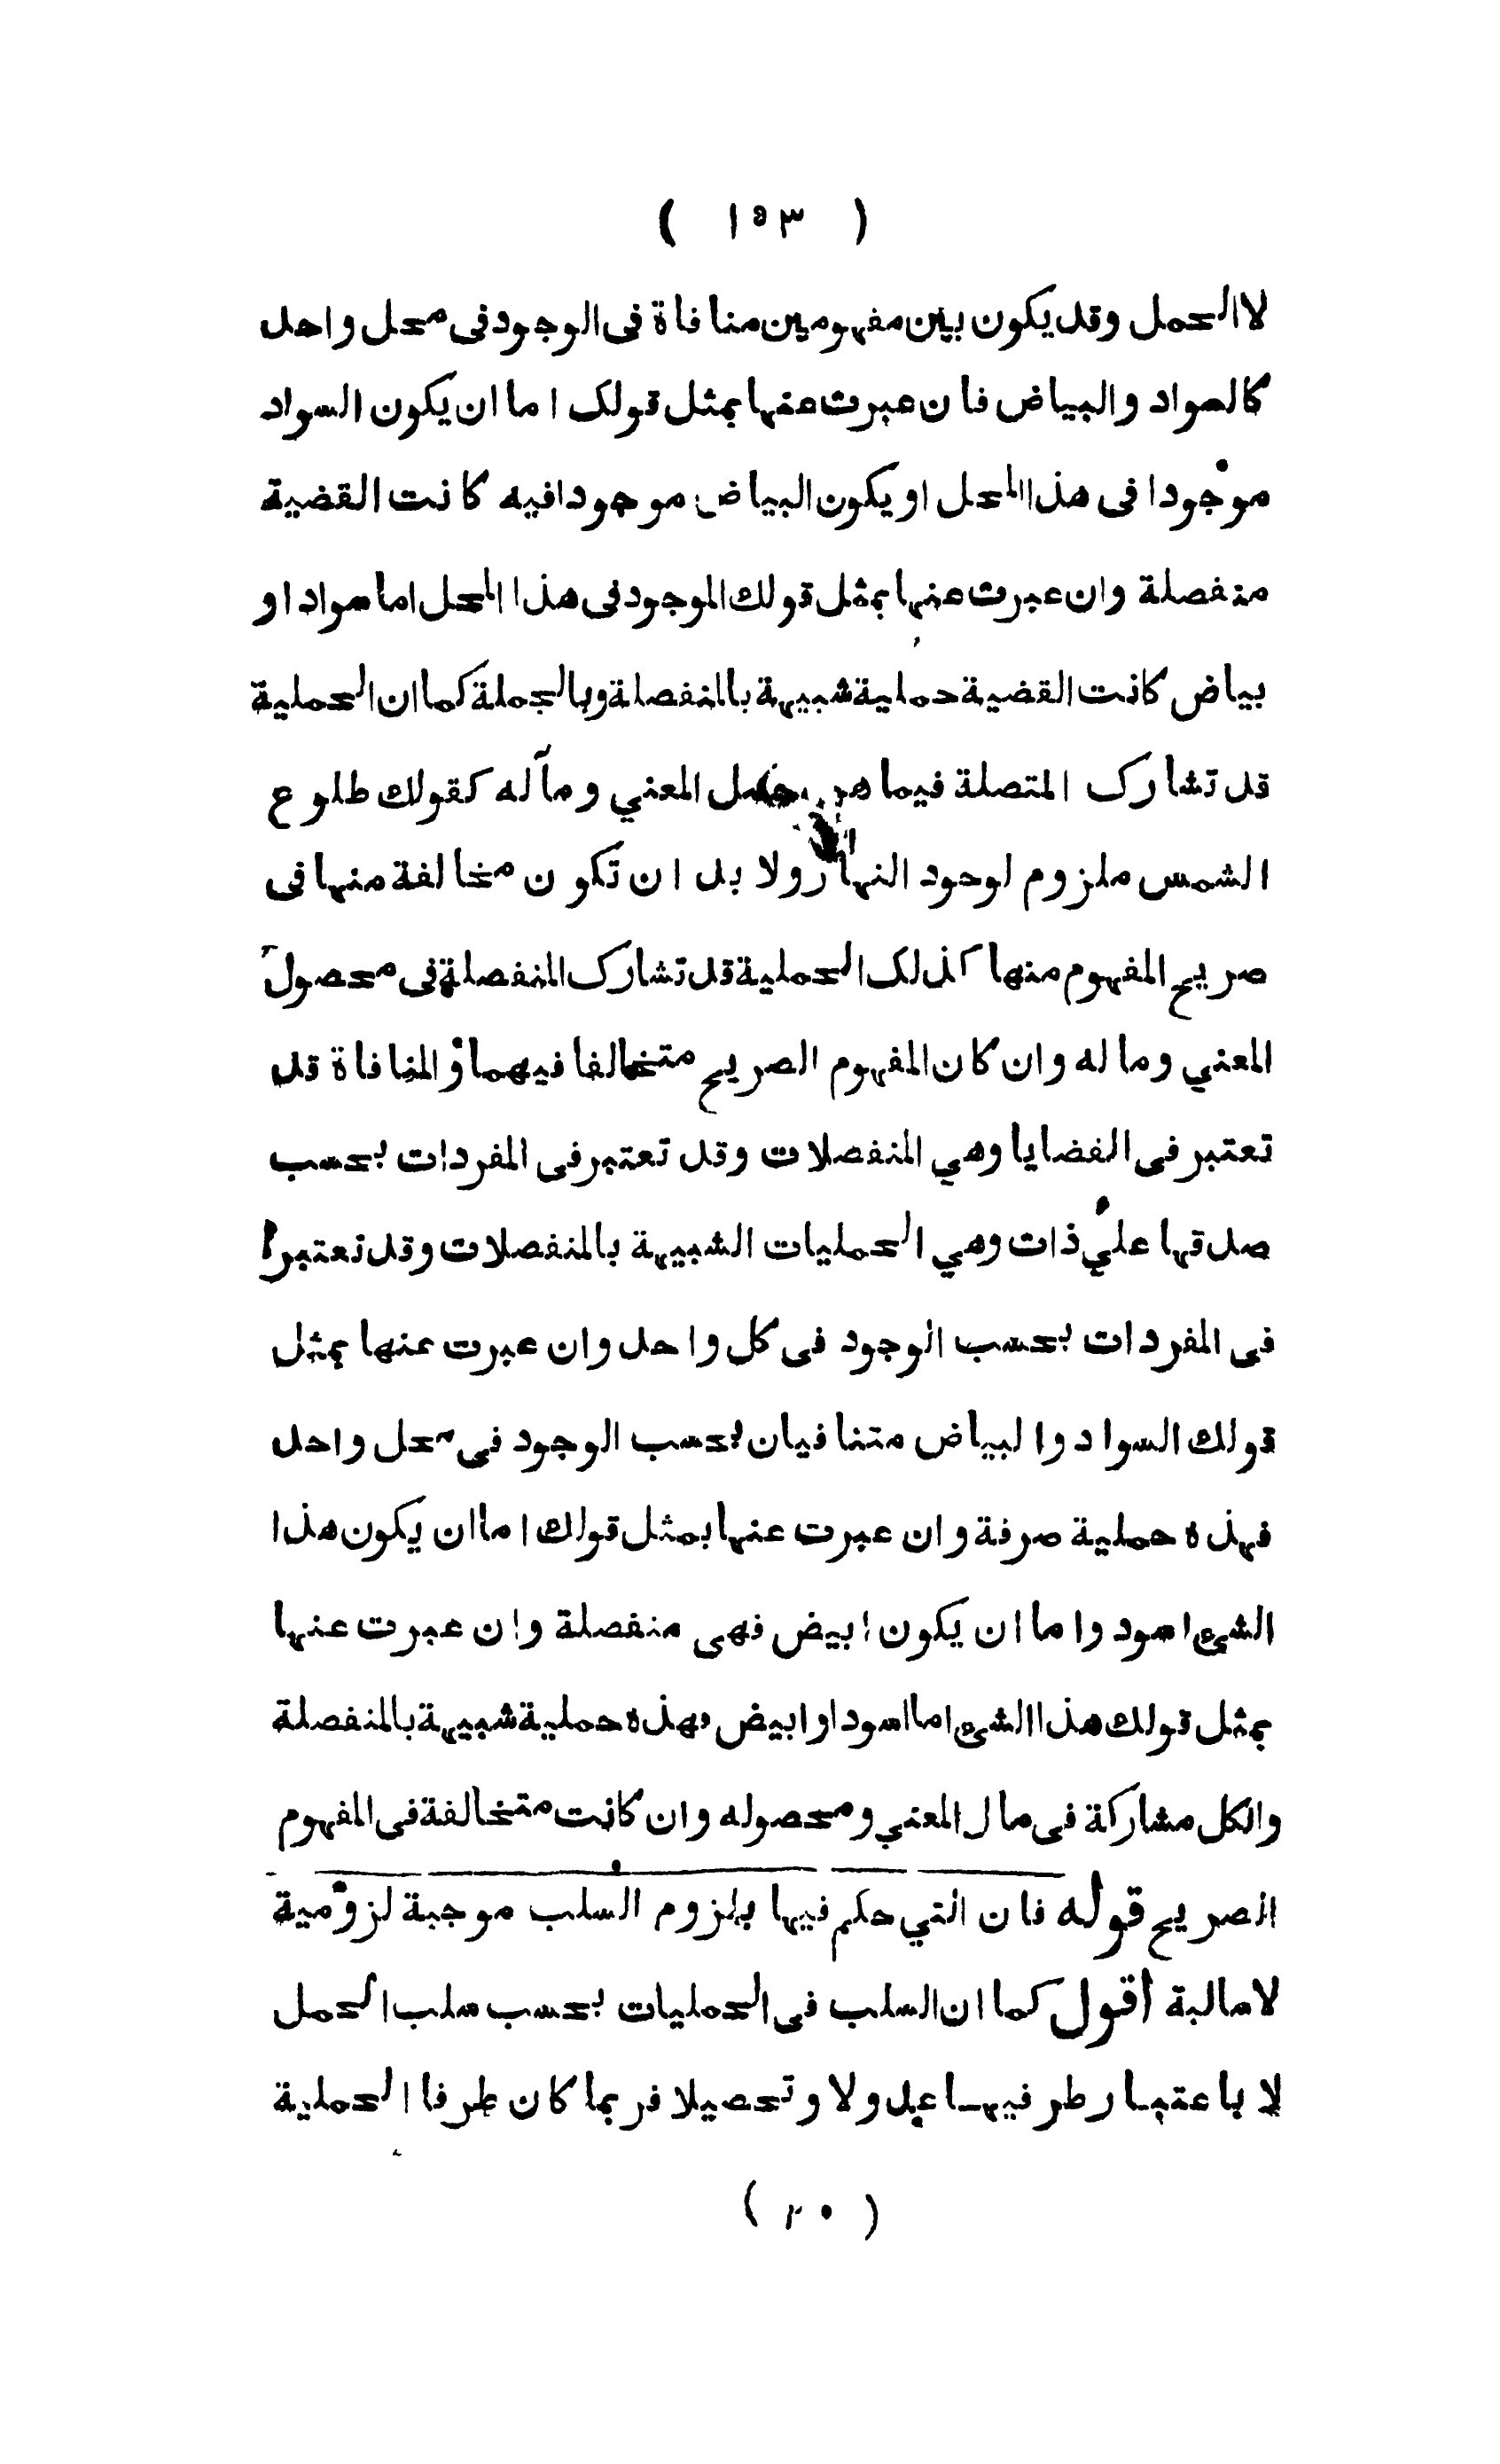 ( ١٥٣ )
لا الحمل وقد يكون بين مفهومين منافاة فى الوجود فى محل واحد
كالسواد والبياض فان عبرت عنها بمثل قولك اما ان يكون السواد
موجودا فى هذا المحل او يكون البياض موجودا فيه كانت القضية
منفصلة وان عبرت عنها بمثل قولك الموجود فى هذا المحل اما سواد او
بياض كانت القضية حملية شبيهة بالمنفصلة وبالجملة كما ان الحملية
قد تشارك المتصلة فيما هو المعني ومآله كقولك طلوع
الشمس ملزوم لوجود النهار ولا بد ان تكون مخالفة منها فى
صريح المفهوم منها كذلك الحملية قد تشارك المنفصلة فى محصول
المعني وماله وان كان المفهوم الصريح متخالفا فيهما والمنافاة قد
تعتبر فى القضايا وهي المنفصلات وقد تعتبر فى المفردات بحسب
صدقها علي ذات وهي الحمليات الشبيهة بالمنفصلات وقد تعتبر
فى المفردات بحسب الوجود فى كل واحد وان عبرت عنها بمثل
قولك السواد والبياض متنافيان بحسب الوجود فى محل واحد
فهذه حملية صرفة وان عبرت عنها بمثل قولك اما ان يكون هذا
الشئ اسود واما ان يكون ابيض فهى منفصلة وان عبرت عنها
بمثل قولك هذا الشئ اما اسود او ابيض فهذه حملية شبيهة بالمنفصلة
والكل مشاركة فى مال المعني ومحصوله وان كانت متخالفة فى المفهوم
الصريح قوله فان التي حكم فيها بلزوم السلب موجبة لزومية
لا سالبة أقول كما ان السلب فى الحمليات بحسب سلب الحمل
لا باعتبار طرفيها عدولا وتحصيلا فربما كان طرفا الحملية
( ٢٠ )